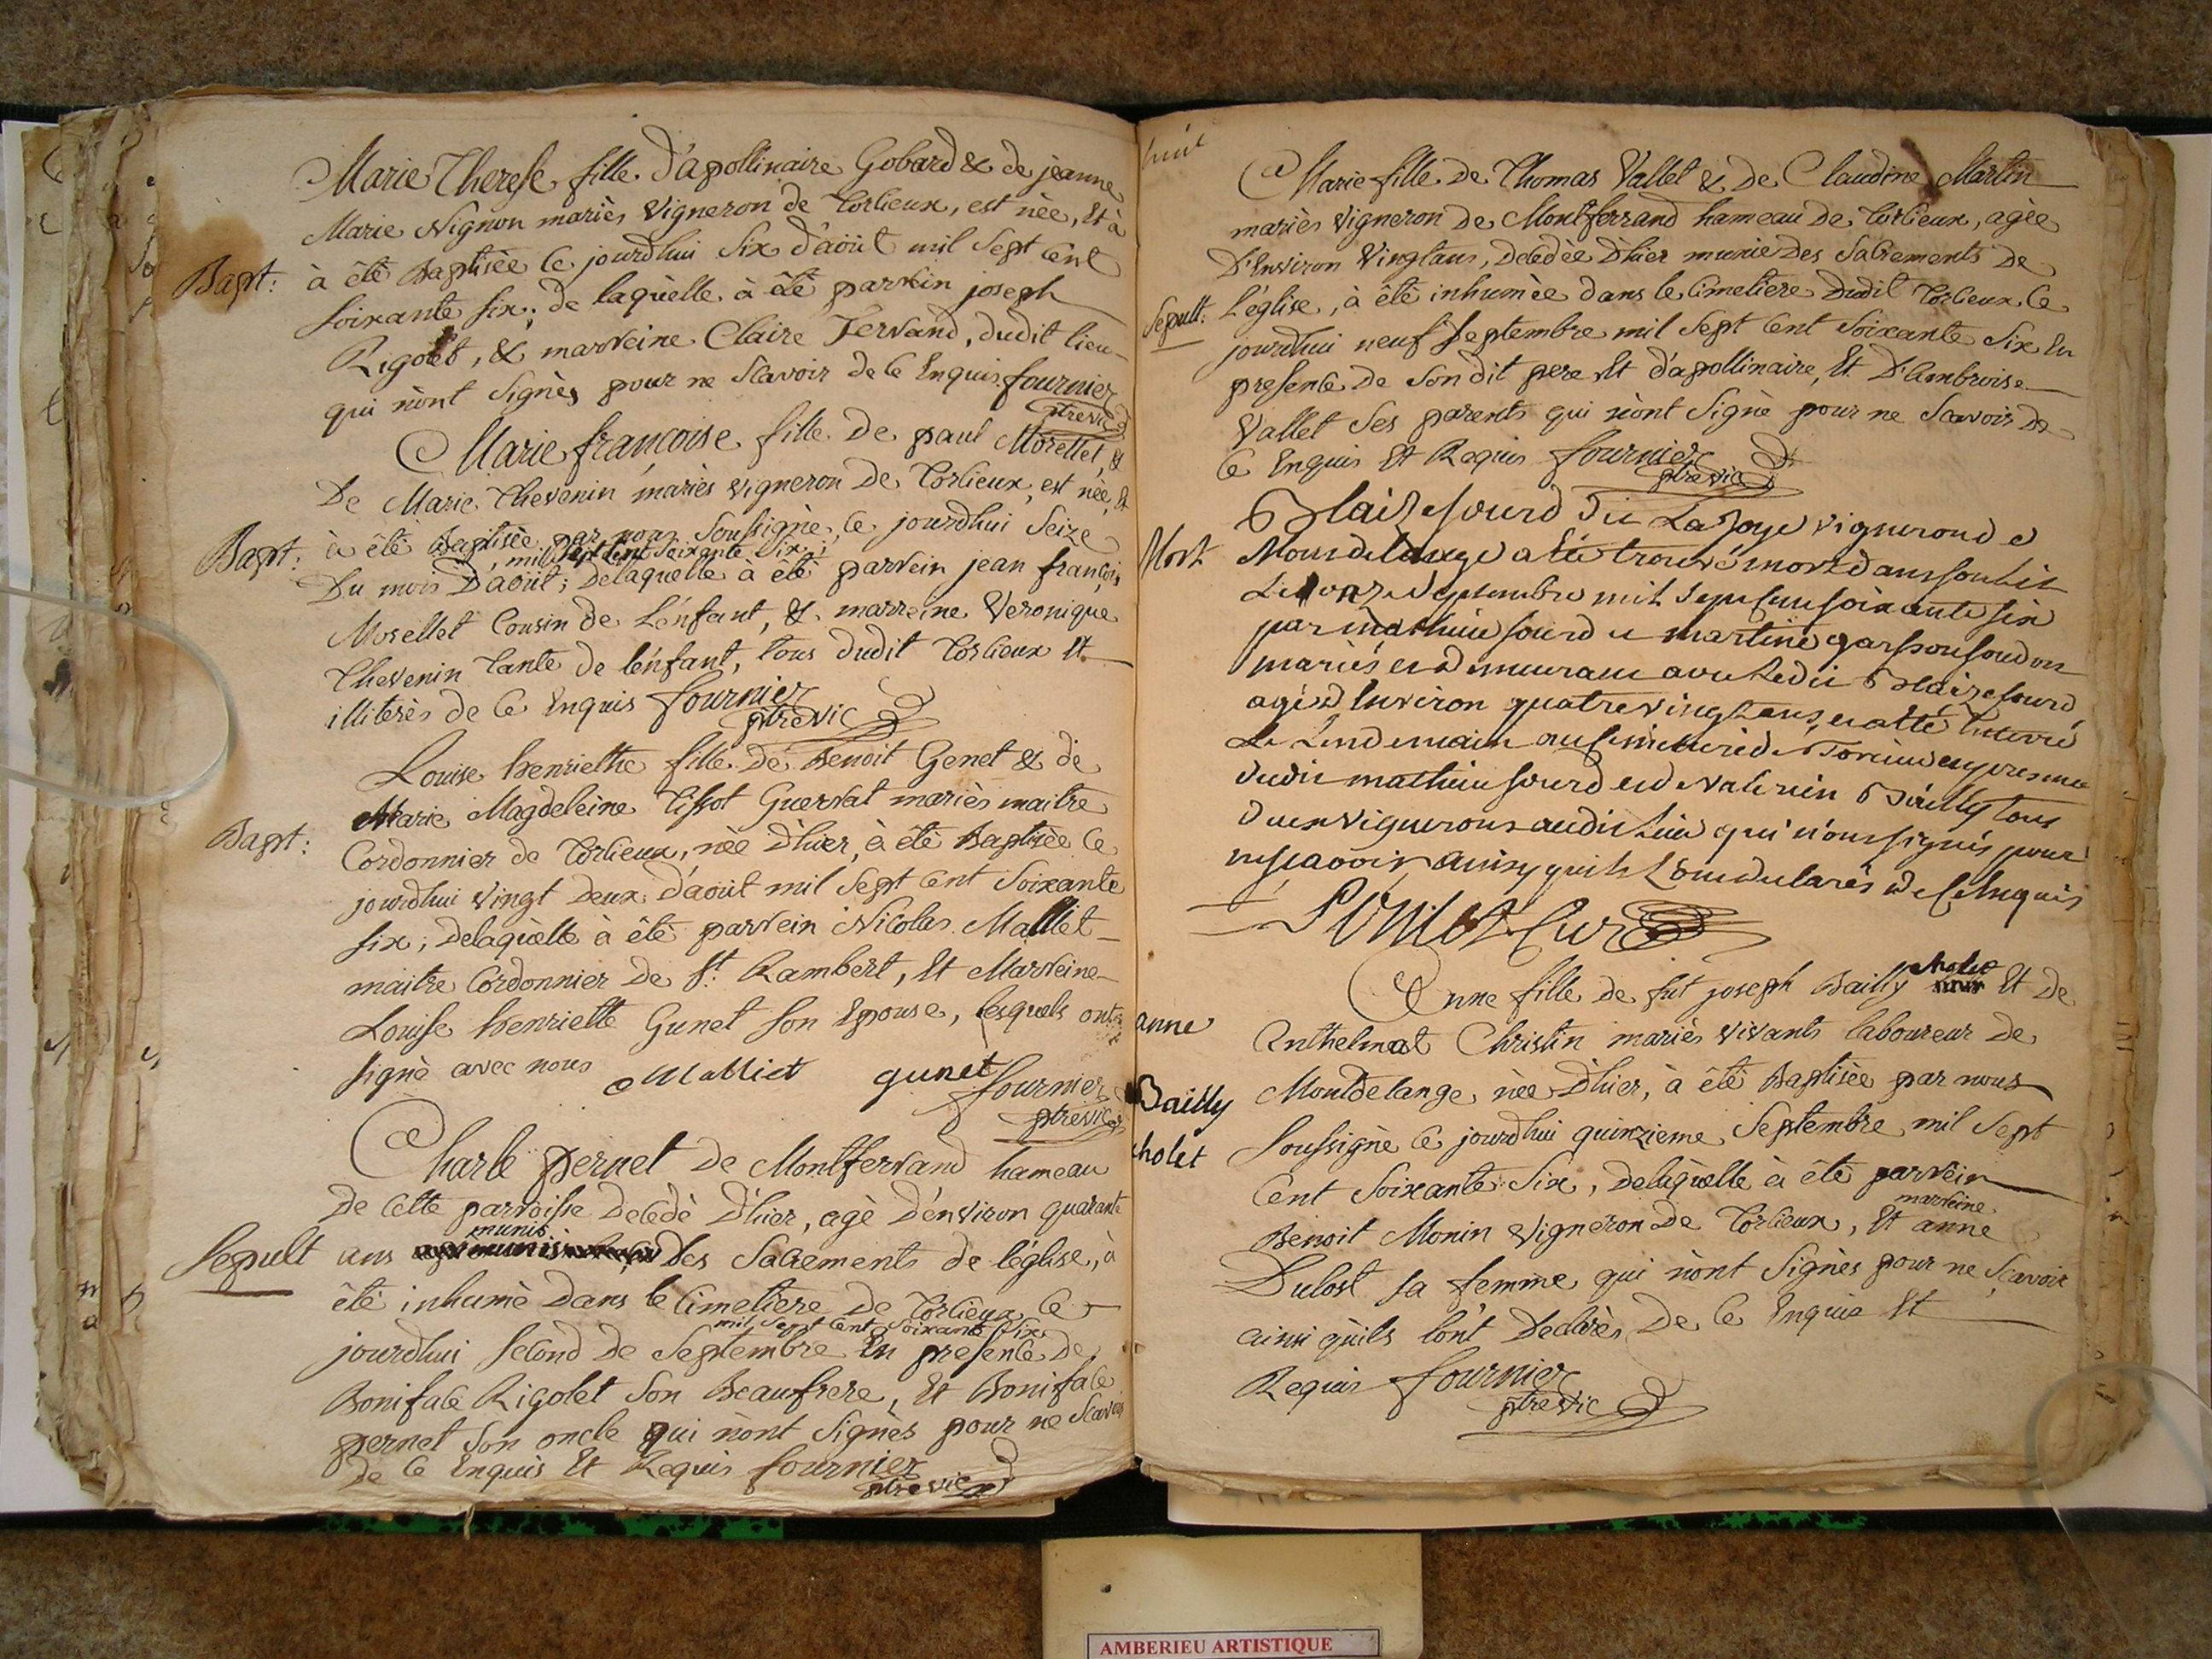 Marie Therese fille d'apollinaire Gobard & de jeanne
Marie Nignon mariès vigneron de Torcieux, est nèe, Et à
Bapt: à ètè Baptisèe Ce jourdhui Six d'aoùt mil Sept Cent
soixante six; de laquèlle à ètè parrein joseph
Rigolet, & marreine Claire Ferrand, dudit lieu
qui n'ont Signès pour ne Scavoir de Ce Enquis fournier
ptre vic
Marie françoise fille de paul Morellet, &
De Marie Thevenin mariès vigneron de Torcieux, est nèe, Et
Bapt: à ètè Baptisèe par nous Soussignè, Ce jourdhui Seize
, mil Sept Cent Soixante Six;
Du mois D'aoùt; delaquelle à ètè parrein jean françois
Morellet Cousin de L'enfant, & marreine Veronique
Thevenin Tante de l'enfant, tous dudit Torcieux Et
illiterès de Ce Enquis fournier
ptre vic
Louise henriette fille de Benoit Genet & de
Marie Magdeleine Tissot Guerrat mariès maitre
Bapt: Cordonnier de Torcieux, nèe D'hier, à ètè Baptisèe Ce
jourdhui vingt Deux d'aoùt mil Sept Cent Soixante
six; delaquèlle à ètè parrein Nicolas Malliet
maitre Cordonnier de St. Rambert, Et Marreine
Louise henriette Gunet son Epouse, lesquels ont
signè avec nous Malliet gunet fournier
ptre vic
Charle pernet de Montferrand hameau
De Cette parroisse Decèdè D'hier, agè D'environ quarante
munis
Sepult ans Des Sacrements de l'èglise, à
ètè inhumè Dans le Cimetiere de Torcieux Ce
mil Sept Cent Soixante Six
jourdhui second de Septembre En presence de
Boniface Rigolet Son Beaufrere, Et Boniface
pernet Son oncle qui n'ont Signès pour ne Scavoir
de Ce Enquis Et Requis fournier
ptre vic
Marie fille de Thomas Vallet & de Claudine Martin
mariès vigneron de Montferrand hameau de Torcieux, agèe
D'Environ Vingt ans, Decedèe D'hier munie Des Sacrements De
Sepult: L'èglise, à ètè inhumèe dans le Cimetiere Dudit Torcieux Ce
jourdhui neuf Septembre mil Sept Cent Soixante Six En
presence de Son dit pere Et d'apollinaire, Et D'Ambroise
Vallet Ses parents qui n'ont Signè pour ne Scavoir De
Ce Enquis Et Requis fournier
ptre vic
Blaize Sourd dit La Joye vigneron de
Mort Mondelange a été trouvé mort dans son Lit
Le onze septembre mil sept cent soixante six
par mathieu sourd et martine garsson
mariés et demeurant avec ledit Blaize sourd
agé d'Environ quatre vingt ans, et a été Enterré
Le Lendemain au cimetierre de Torcieu en presence
dudit mathieu sourd et de vallerin Bailly tous
deux vignerons audit Lieu qui n'ont signés pour
ne scavoir ainsy qu'ils L'ont declarés de Ce Enquis
Curé
Anne fille de fut joseph Bailly cholet Et de
anne Anthelmat Christin mariès vivants laboureur de
Bailly Montdelange nèe D'hier, à ètè Baptisèe par nous
cholet Soussignè Ce jourdhui quinzieme Septembre mil Sept
Cent Soixante Six, delaquèlle à ètè parrein
marreine
Benoit Monin vigneron De Torcieux, Et anne
Dulost sa femme qui n'ont Signès pour ne Scavoir
ainsi qu'ils l'ont Declarès De Ce Enquis Et
Requis fournier
ptre vic
AMBERIEU ARTISTIQUE